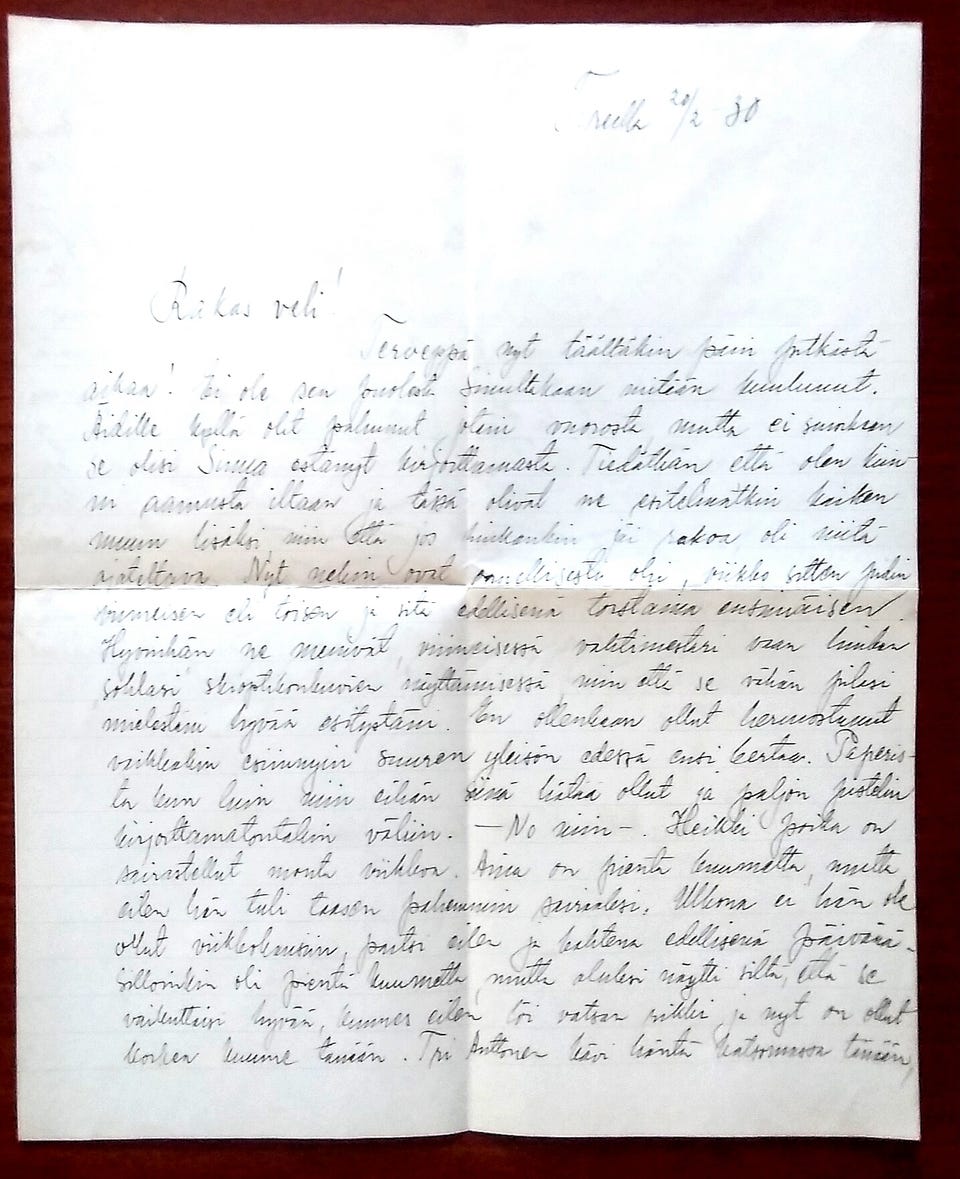 Treella 20/2 - 30
Rakas veli!
Terveppä nyt täältäkin päin pitkästä
aikaa! Ei ole sen puolesta Sinultakaan mitään kuulunut.
Äidille kyllä olit puhunut jotain vuorosta, mutta ei suinkaan
se olisi Sinua estänyt kirjoittamasta. Tiedäthän että olen kiin-
ni aamusta iltaan ja tässä olivat ne esitelmätkin kaiken
muun lisäksi, niin että jos hiukankin jäi rakoa oli niitä
ajateltava. Nyt nekin ovat onnellisesti ohi, viikko sitten pidin
viimeisen eli toisen ja sitä edellisenä torstaina ensimäisen.
Hyvinhän ne menivät, viimeisessä vahtimestari vaan hiukan
sohlasi skioptikonkuvien näyttämisessä, niin että se vähän pilasi
mielestäni hyvää esitystäni. En ollenkaan ollut hermostunut
vaikkakin esiinnyin suuren yleisön edessä ensi kertaa. Paperis-
ta kun luin niin eihän siinä hätää ollut ja paljon pistelin
kirjoittamatontakin väliin. — No niin —. Heikki poika on
sairastellut monta viikkoa. Aina on pientä kuumetta, mutta
eilen hän tuli taasen pahemmin sairaaksi. Ulkona ei hän ole
ollut viikkokausiin, paitsi eilen ja kahtena edellisenä päivänä.
Silloinkin oli pientä kuumetta, mutta aluksi näytti siltä, että se
vaikuttaisi hyvää, kunnes eilen löi vatsan sikki ja nyt on ollut
korkea kuume tänään. Tri Anttonen kävi häntä katsomassa tänään,